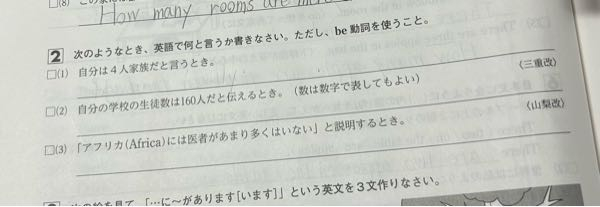 □(8)
How many rooms are
2 次のようなとき、英語で何と言うか書きなさい。ただし、be動詞を使うこと。
□(1) 自分は4人家族だと言うとき。
□(2) 自分の学校の生徒数は160人だと伝えるとき。(数は数字で表してもよい)
〈三重改〉
□(3) 「アフリカ(Africa)には医者があまり多くはいない」と説明するとき。
〈山梨改〉
の絵を見て、「…に〜があります[います]」という英文を3文作りなさい。